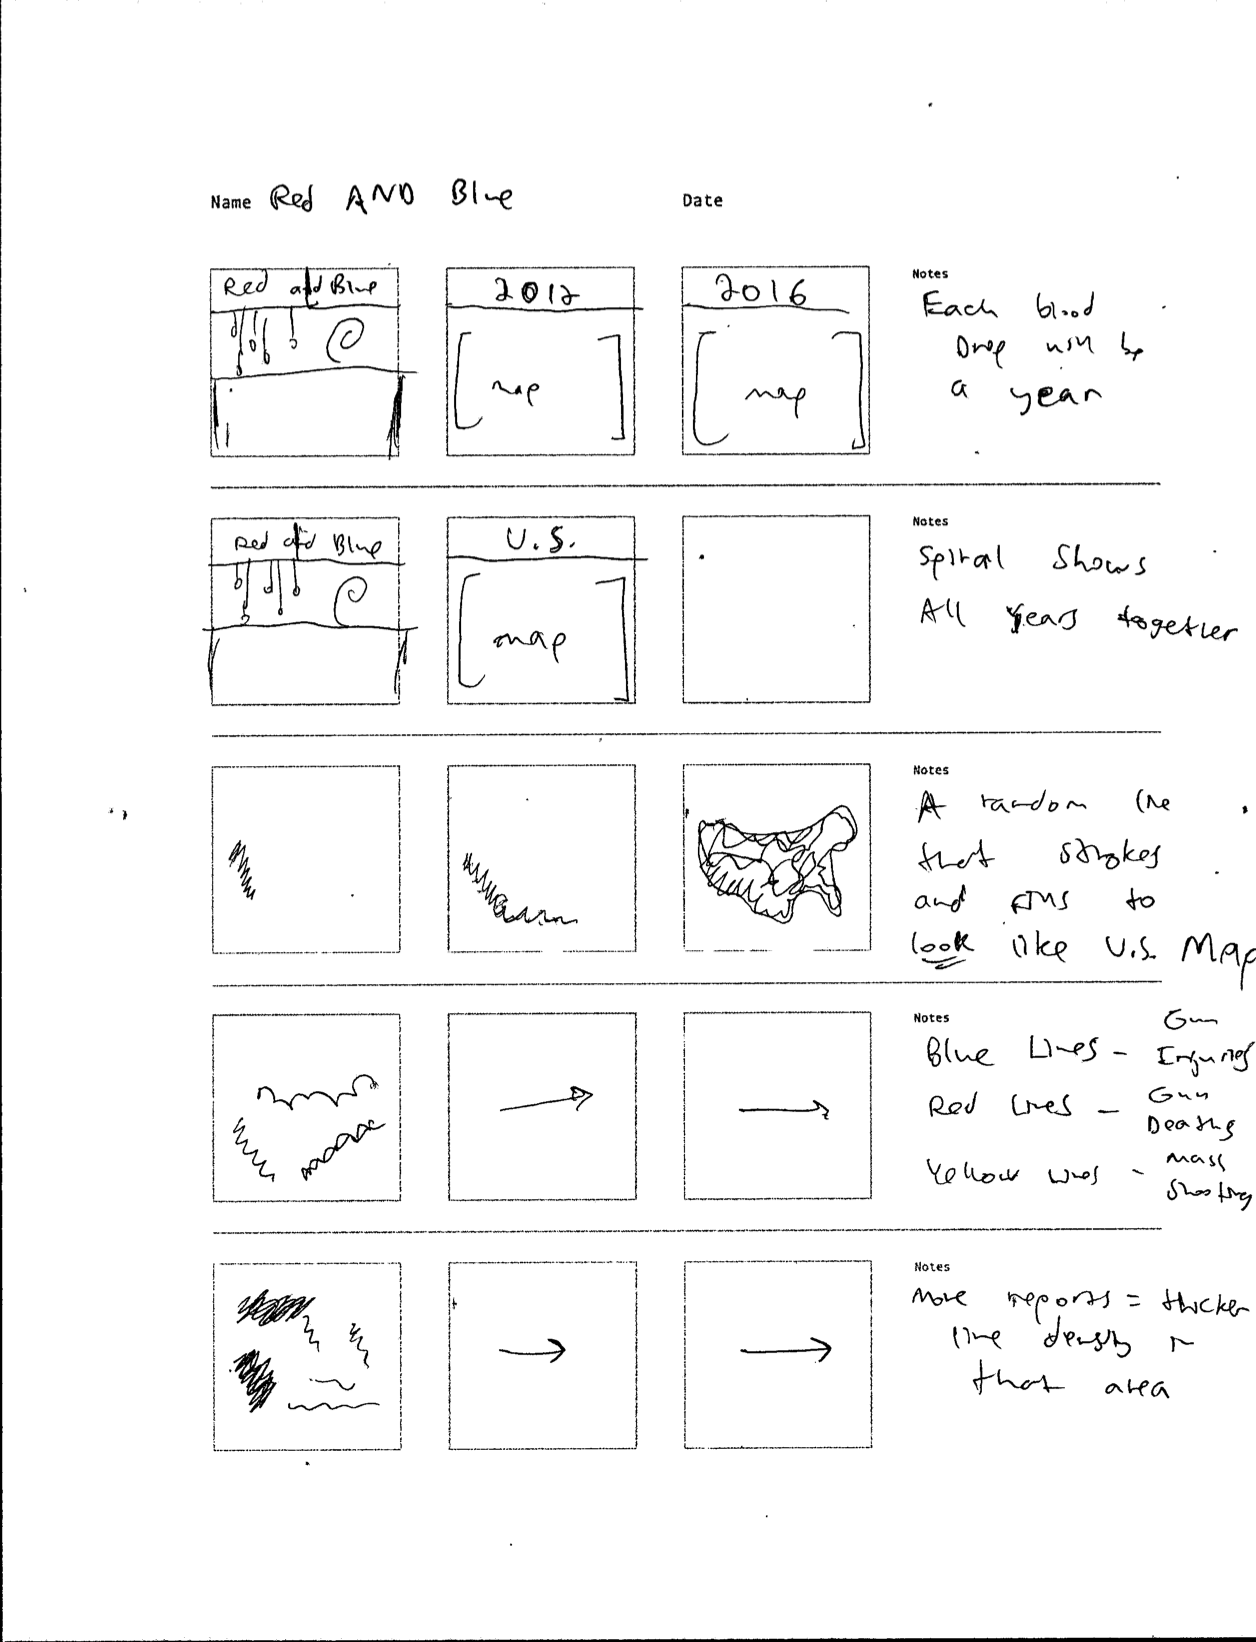 Name Red AND Blue
Date
Red and Blue
2012
2016
map
map
Notes
Each blood
Drop will be
a year
Red and Blue
U.S.
map
Notes
Spiral Shows
All Years together
Notes
A random line
that strokes
and to
look like U.S. Map
Notes
Blue Lines - Gun
Injuries
Red Lines - Gun
Deaths
Yellow Lines - Mass
Shooting
Notes
More reports = thicker
line density in
that area